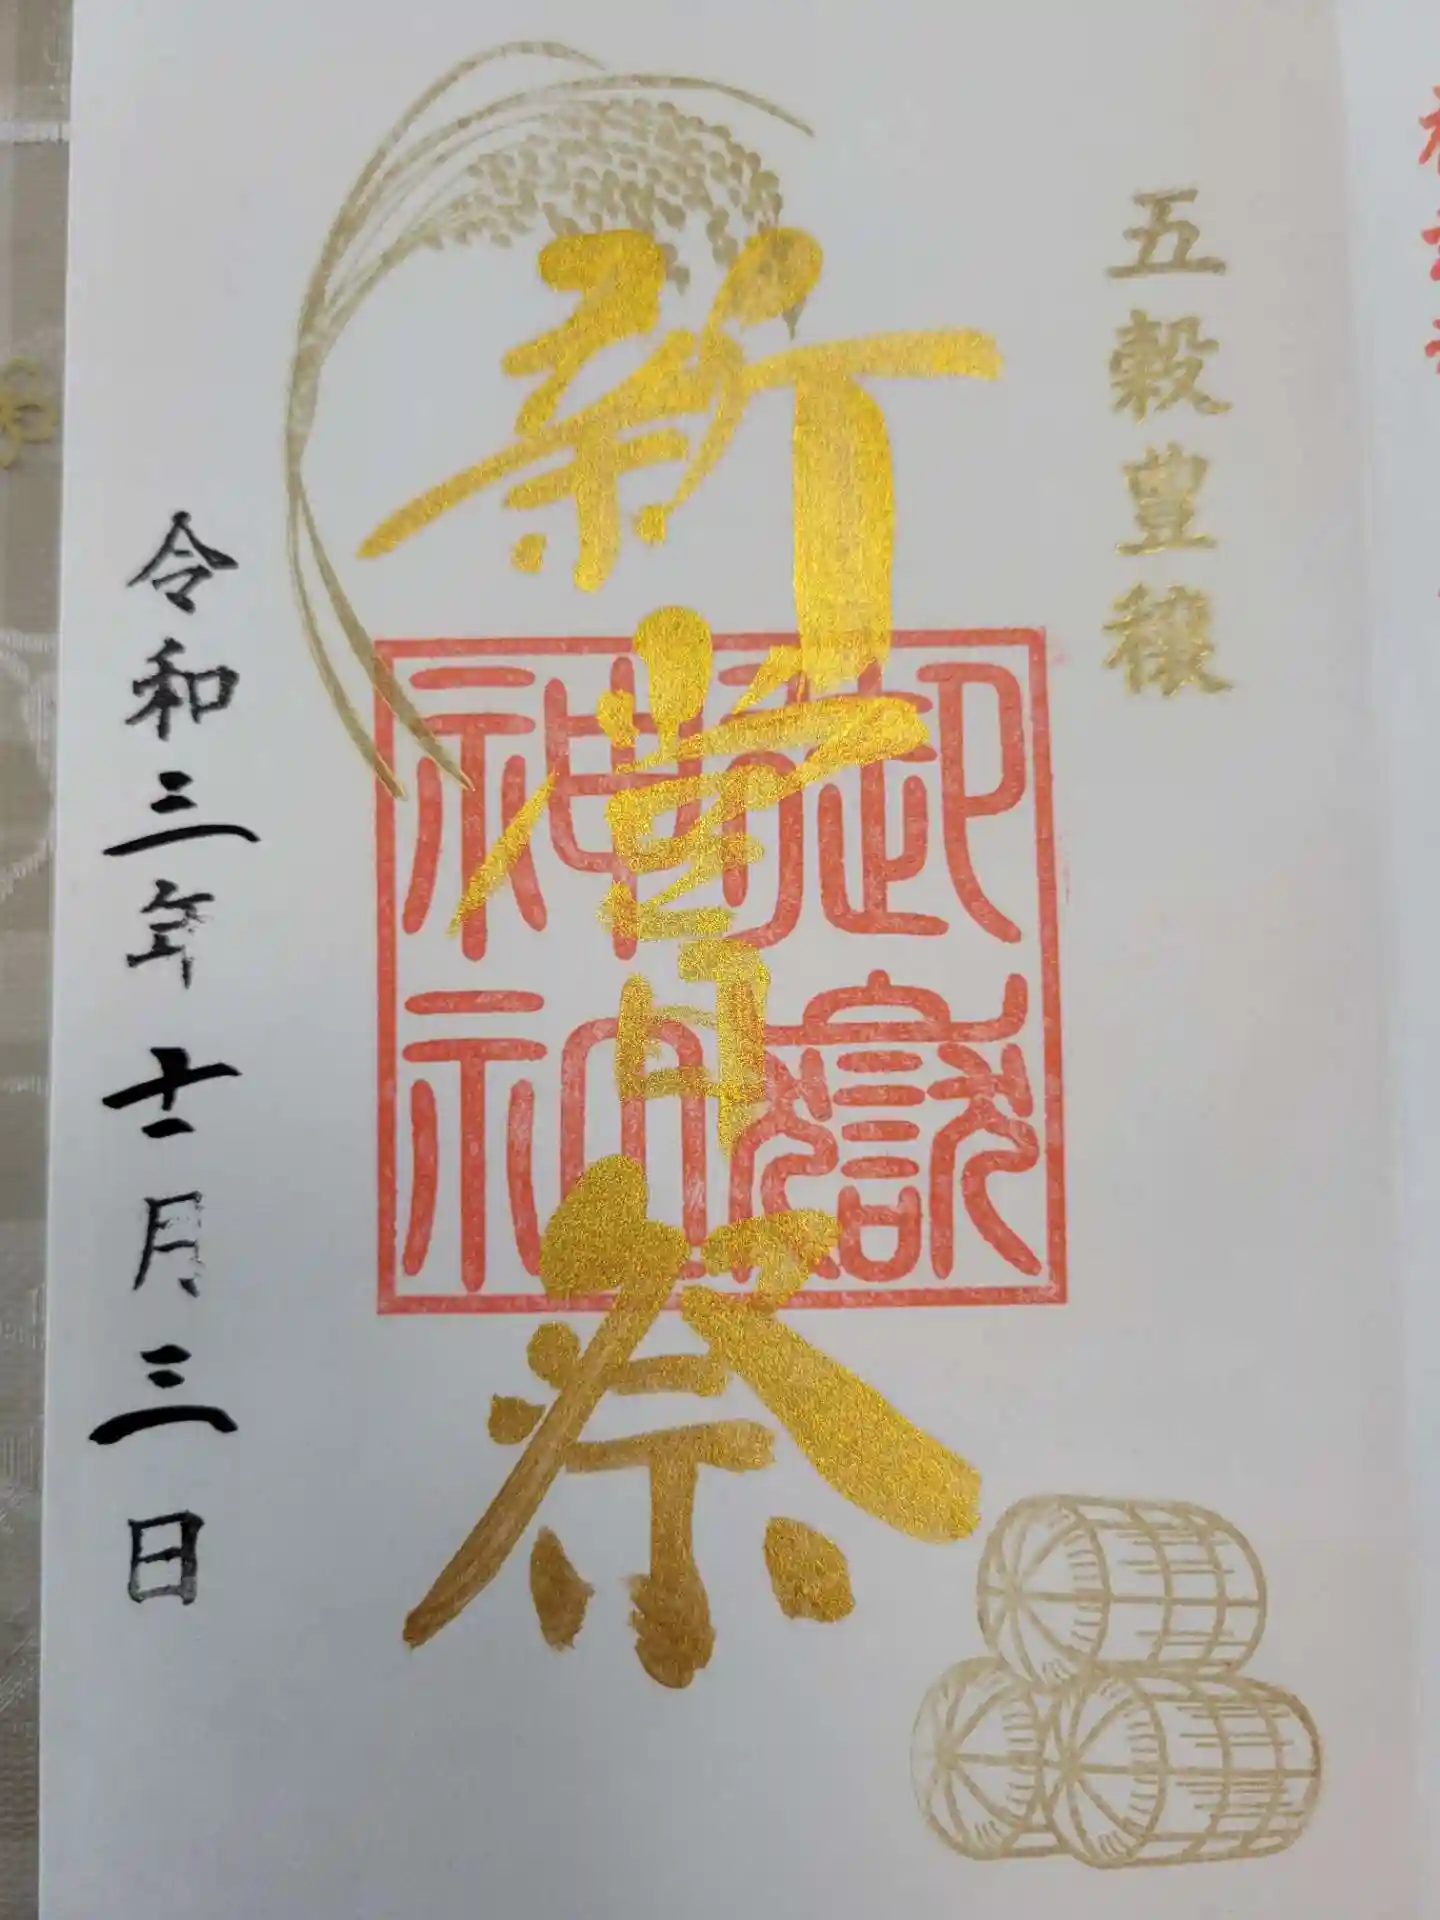 五穀豊穣
新嘗祭
御嶽
神社
令和三年十一月三日